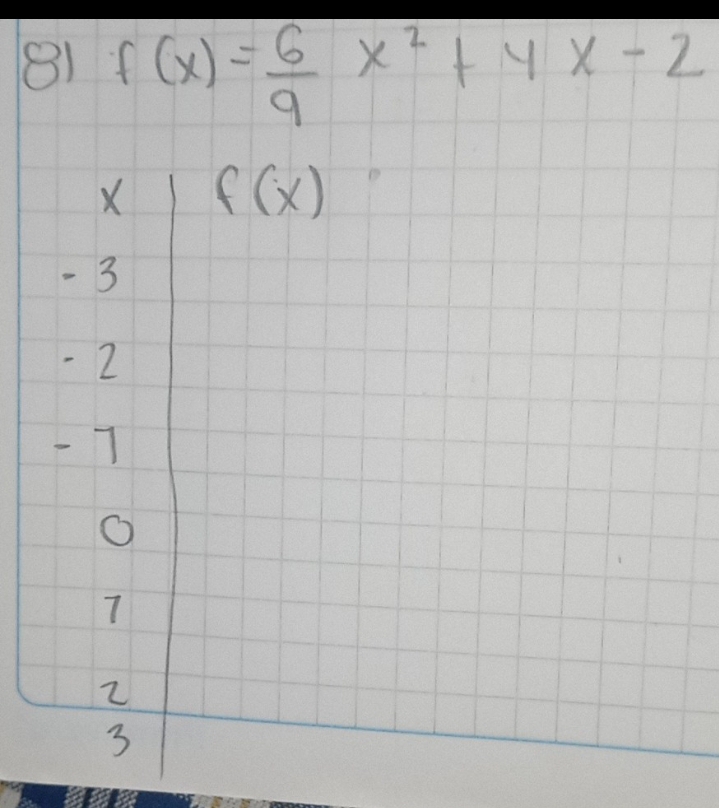 8) f(x) = 6/9 x² + 4x - 2
x | f(x)
-3
-2
-1
0
1
2
3